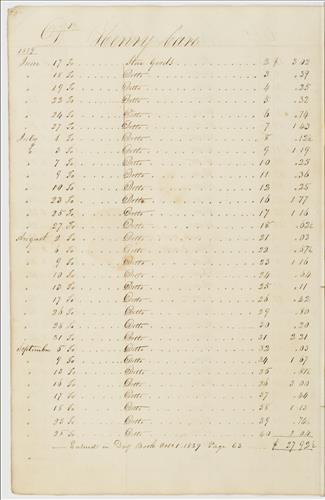 Capt. Henry Cure
1839
June 17 To Stor Goods 2 $ 3.02
" 18 To Ditto 3 .39
" 19 To Ditto 4 .25
" 22 To Ditto 5 .32
" 24 To Ditto 6 .74
" 27 To Ditto 7 1 43
July 1 To Ditto 8 .12½
" 3 To Ditto 9 1 19
" 7 To Ditto 10 .25
" 9 To Ditto 11 .36
" 10 To Ditto 12 .25
" 23 To Ditto 16 1 77
" 25 To Ditto 17 1 16
" 27 To Ditto 18 .62½
August 2 To Ditto 21 .02
" 6 To Ditto 22 .67½
" 9 To Ditto 23 1 16
" 10 To Ditto 24 .64
" 12 To Ditto 25 .11
" 17 To Ditto 26 .42
" 26 To Ditto 29 .80
" 28 To Ditto 30 .20
" 31 To Ditto 31 2 21
September 5 To Ditto 32 .03
" 9 To Ditto 34 1 67
" 12 To Ditto 35 .81½
" 16 To Ditto 36 3 00
" 17 To Ditto 37 .44
" 18 To Ditto 38 1 13
" 22 To Ditto 39 .76
" 25 To Ditto 40 2 04
Entered in Day Book Oct 1 1839 Page 63 $ 27,92½